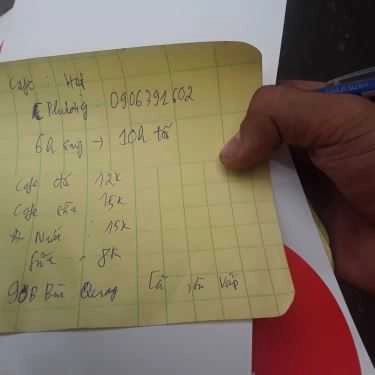 Cafe : Hạ
Phương 0906791602
6h sáng → 10h tối
Cafe đá 12k
Cafe sữa 15k
Nước : 15k
Sữa - 8k
90B Bùi Quang Là Gò Vấp